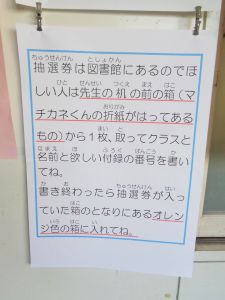 抽選券は図書館にあるのでほ
しい人は先生の机の前の箱（マ
チカネくんの折紙がはってある
もの）から１枚、取ってクラスと
名前と欲しい付録の番号を書い
てね。
書き終わったら抽選券が入っ
ていた箱のとなりにあるオレン
ジ色の箱に入れてね。